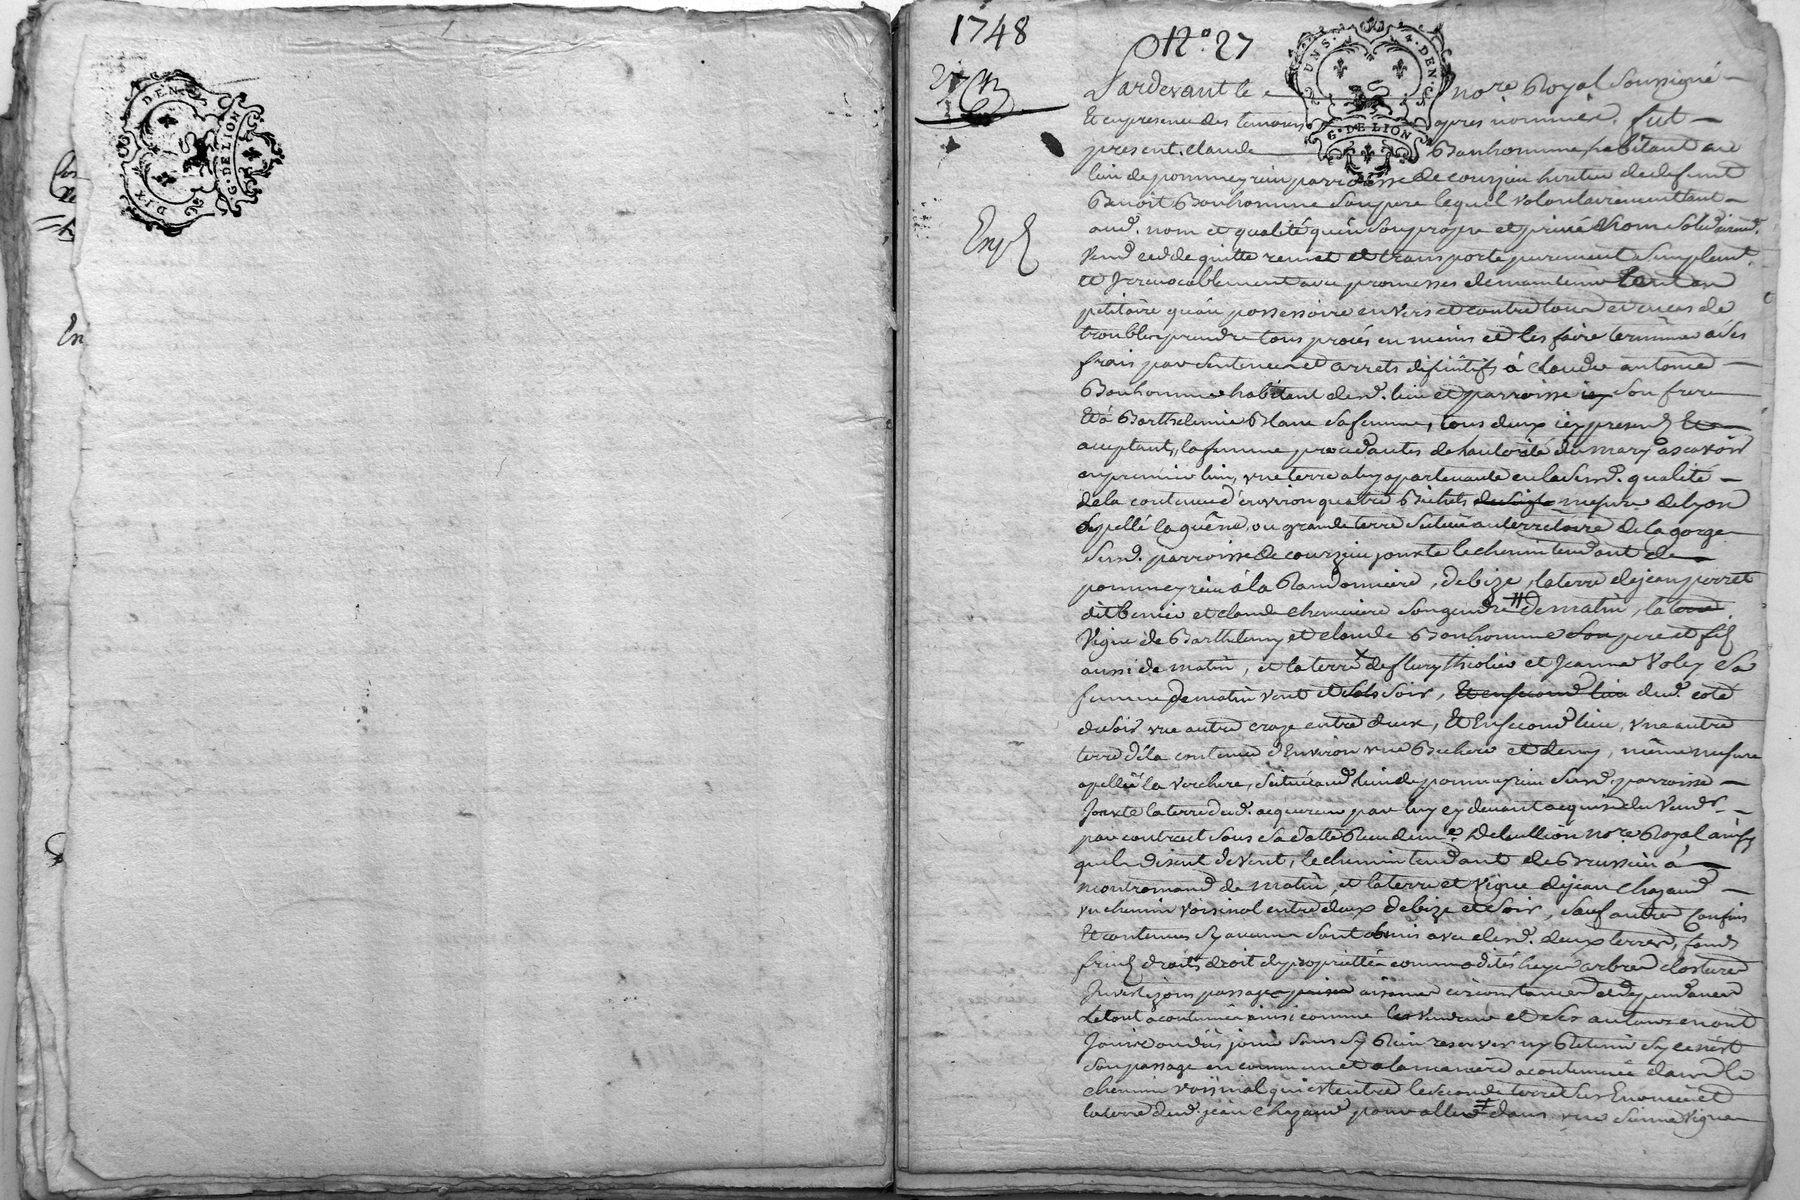 DIX DEN.
G. DE LION
1748
N.° 27
UNS. 4. DEN.
G. DE LION
Pardevant le no.re Royal soussigné
Et en presence des temoins apres nommés, fut
present claude Bonhomme habitant au
lieu de pommeyrieu parroisse de courzieu heritier de defunt
Benoit Bonhomme son pere lequel volontairement tant
aud. nom et qualité qu'en son propre et privé nom solidairem.t
vend cedde quitte remet et transporte purement simplem.t
et Irrevocablement avec promesses de maintenir tant au
petitoire qu'au possessoire envers et contre tous et en cas de
troubles prendre tous procés en mains et les faire terminer à ses
frais par sentences et arrets difinitifs à claude antoine
Bonhomme habitant desd. lieu et parroisse icy son frere
Et à Barthelemie Blanc sa femme, tous deux icy present Et
acceptant, la femme procedante de l'autorité du mary ascavoir
en premier lieu, une terre a luy apartenante en lad. qualité
de la contenue d'environ quatre Bichets mesure de lyon
apellé la guêne, ou grande terre située au territoire de la gorge
susd. parroisse de courzieu jouxte le chemin tendant de
pommeyrieu à la Randonniere, de bize, la terre de jean perret
dit et claude son gendre de matin, la
vigne de Barthelemy et claude Bonhomme son pere et fils
aussi de matin, et la terre de fleury thiolier et Jeanne Voley sa
femme de matin vent et soir, Et en second lieu dud. coté
du soir une autre croze entre deux, Et En second lieu, une autre
terre de la contenue d'Environ une Bichere et demy, même mesure
apellée la verchere, située aud. lieu de pommeyrieu susd. parroisse
Jouxte la terre dud. acquereur par luy cy devant acquise du vend.r
par contract sous sa datte Receu de m.e Delullion no.re Royal ainsy
qu'ils disent de vent, le chemin tendant de Brussieu à
montromand de matin, et la terre et vigne de jean Chazaud
un chemin voisinal entre deux de bize et soir, sauf autres Confins
Et contenues sy aucuns sont omis avec lesd. deux terres, fonds
fruits droits droit de proprietté commodités hayes arbres clotures
passages aisances circonstances et dependances
le tout acoutumés ainsi comme le vendeur et ses auteurs en ont
Joui ou dus jouir sans sy Rien reserver ny Retenir sy ce n'est
son passage en commun et a la maniere acoutumée dans le
chemin voisinal qui est entre la seconde terre sus Enoncée et
la terre dud. jean Chazaud pour aller dans une sienne vigne